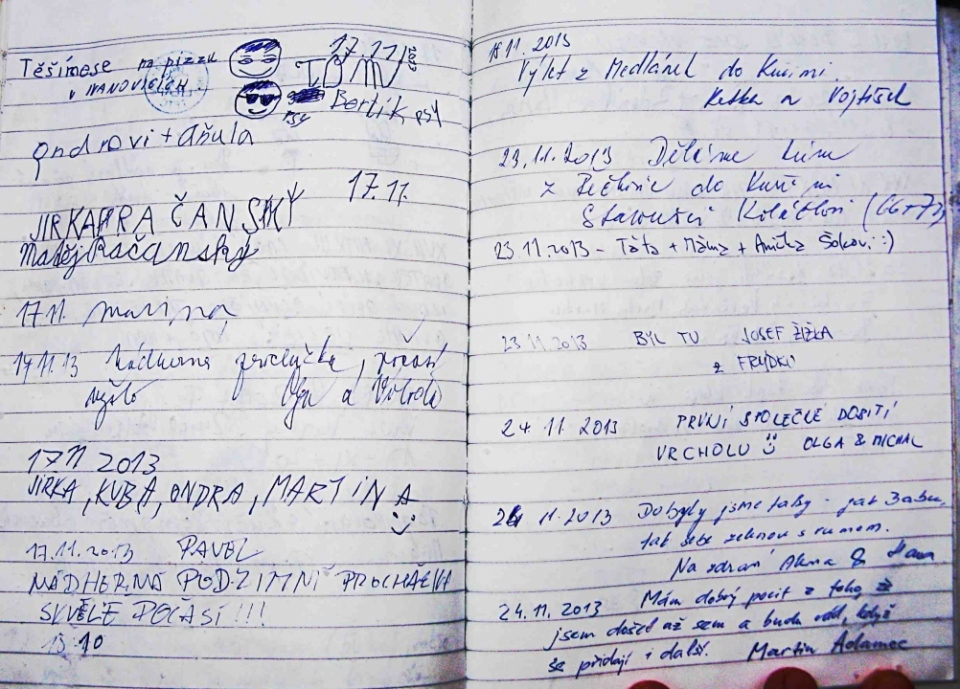 Těšímese na pizzu
v IVANOVICÍCH
17.11.
TOMV
Bertík psy
psy
ondrovi + aňula
17.11.
JIRKA RAČANSKÝ
Matěj Račanský
17.11. martina
17.11.13 Nádherná procházka, počasí
Olga a
17 11 2013
JIRKA, KUBA, ONDRA, MARTINA
17.11.2013 PAVEL
NÁDHERNÁ PODZIMNÍ PROCHÁZKA
SKVĚLÉ POČASÍ!!!
13 10
18.11.2013
Výlet z Medlánek do Kuřimi
Katka a Vojtíšek
23.11.2013 Děláme túru
z Řečkovic do Kuřimi
Staroušci (66+72)
23.11.2013 - Táta + Máma + Anička :)
23 11.2013 BYL TU JOSEF ŽIŽKA
z FRÝDKU
24. 11 2013 PRVNÍ SPOLEČLÉ DOBITÍ
VRCHOLU OLGA & MICHAL
24 11.2013 Dobyly jsme taky - jak Babu,
tak sebe rumem.
Na zdraví Alena & Hana
24.11.2013 Mám dobrý pocit z toho, že
jsem došel až sem a budu rád, když
se přidají i další. Martin Adamec